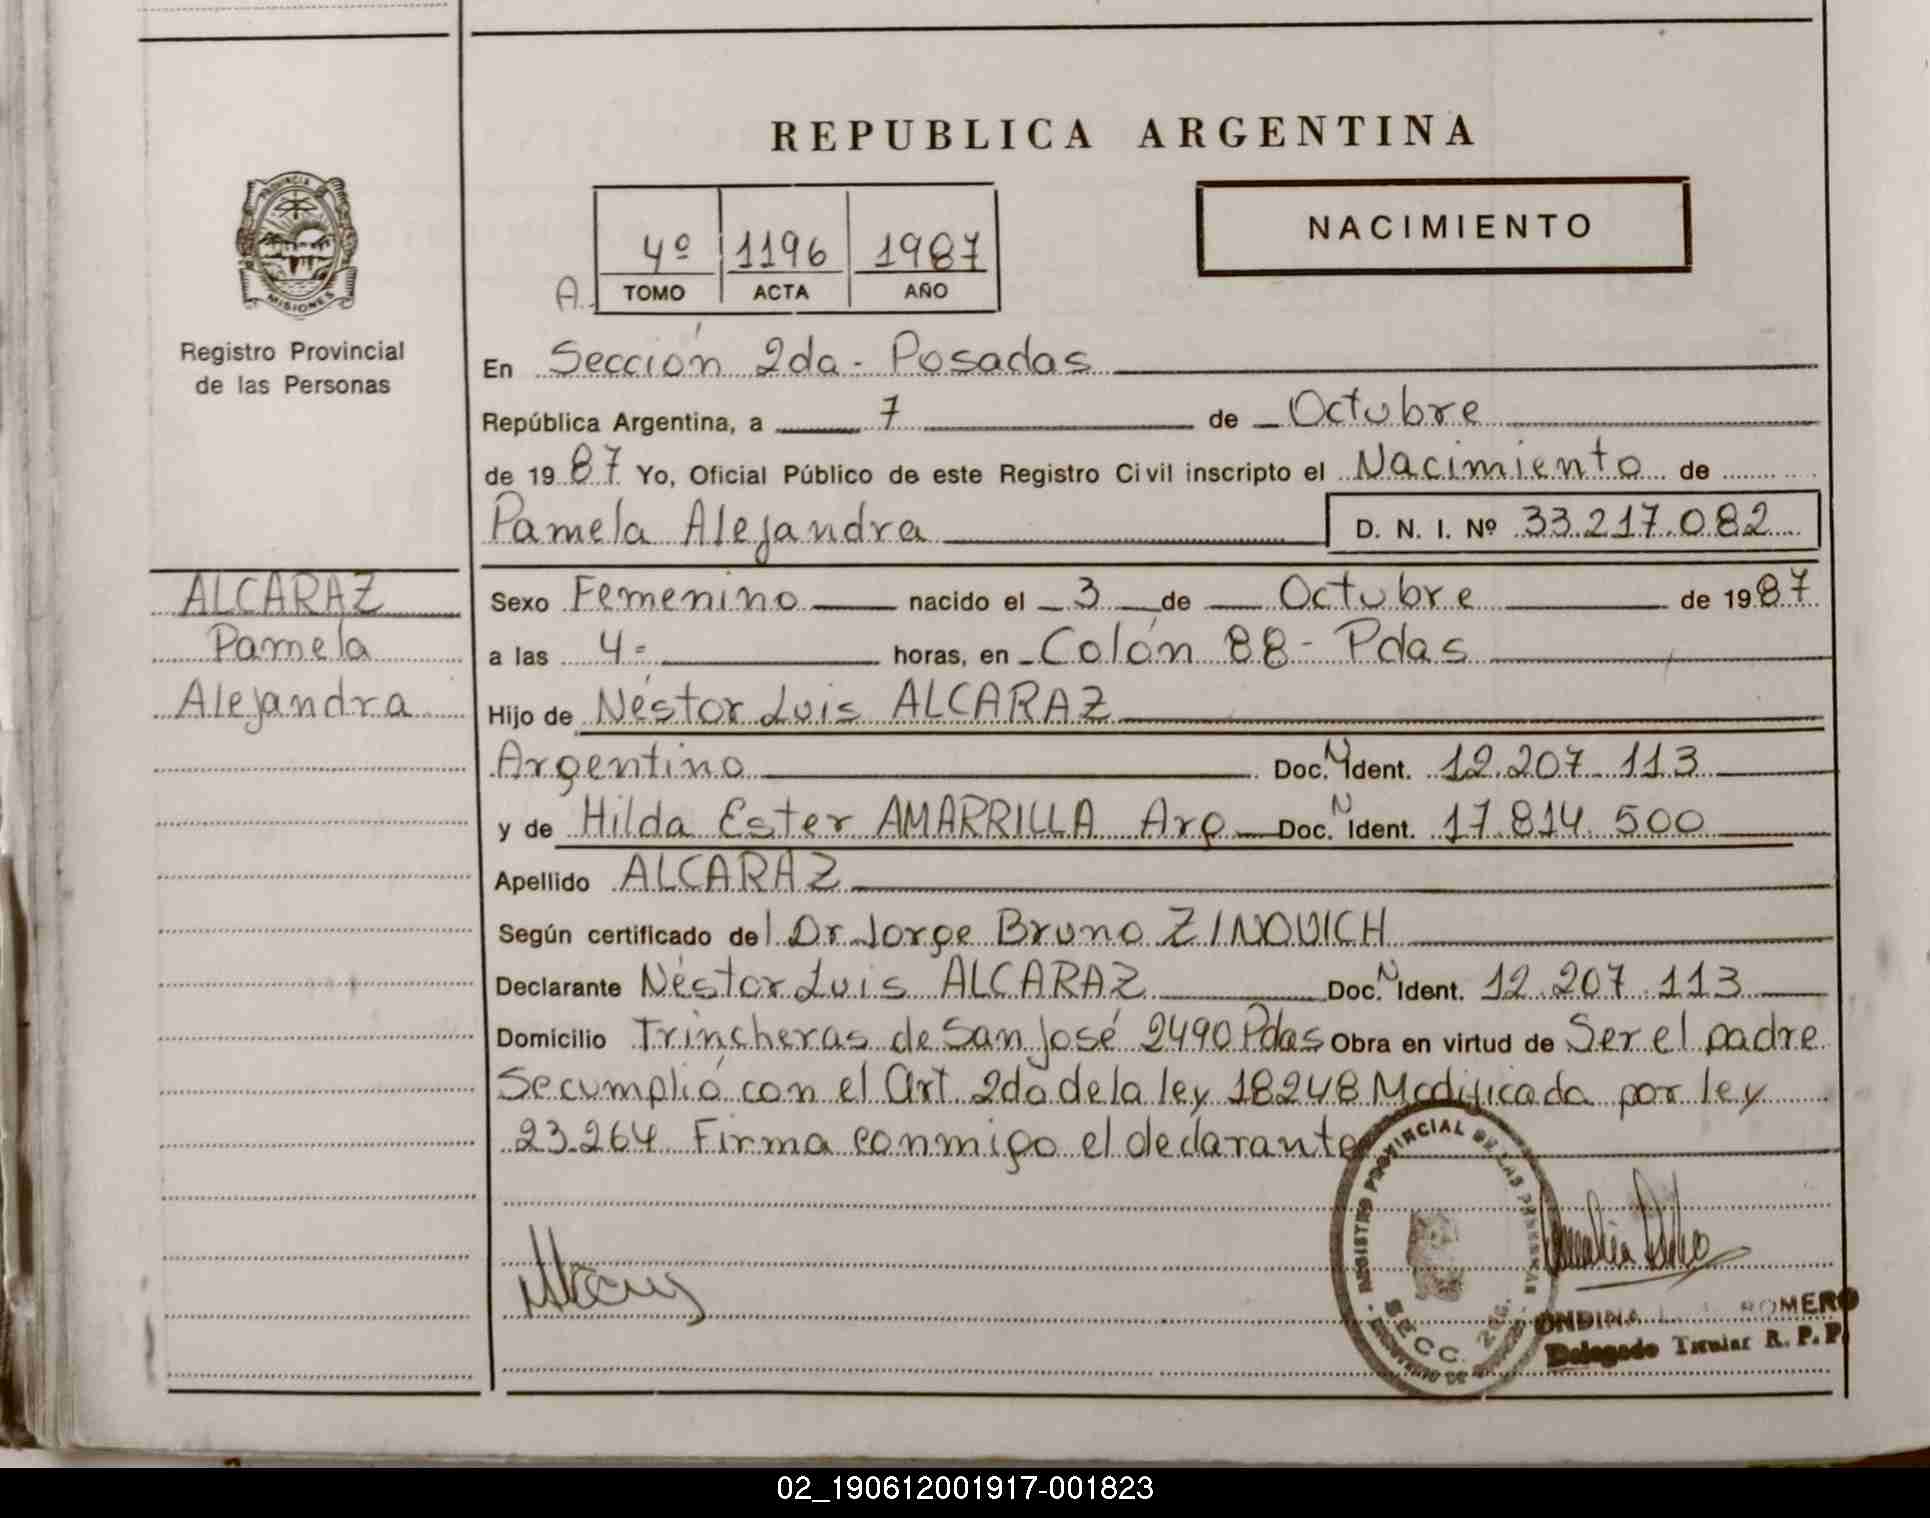 REPUBLICA ARGENTINA
NACIMIENTO
4º 1196 1987
A. TOMO ACTA AÑO
PROVINCIA DE
MISIONES
Registro Provincial
de las Personas
En Sección 2da - Posadas
República Argentina, a 7 de Octubre
de 1987 Yo, Oficial Público de este Registro Civil inscripto el Nacimiento de
Pamela Alejandra D. N. I. Nº 33.217.082
ALCARAZ
Pamela
Alejandra
Sexo Femenino nacido el 3 de Octubre de 1987
a las 4- horas, en Colón 88 - Pdas
Hijo de Néstor Luis ALCARAZ
Argentino Doc. N Ident. 12.207.113
y de Hilda Ester AMARRILLA Arg Doc. N Ident. 17.814.500
Apellido ALCARAZ
Según certificado del Dr. Jorge Bruno ZINOVICH
Declarante Néstor Luis ALCARAZ Doc. N Ident. 12.207.113
Domicilio Trincheras de San José 2490 Pdas Obra en virtud de Ser el padre
Se cumplió con el Art. 2do de la ley 18248 Modificada por ley
23.264 Firma conmigo el declarante
REGISTRO PROVINCIAL DE LAS PERSONAS
SECC. 2da.
ONDINA ROMERO
Delegado Titular R. P. P.
02_190612001917-001823